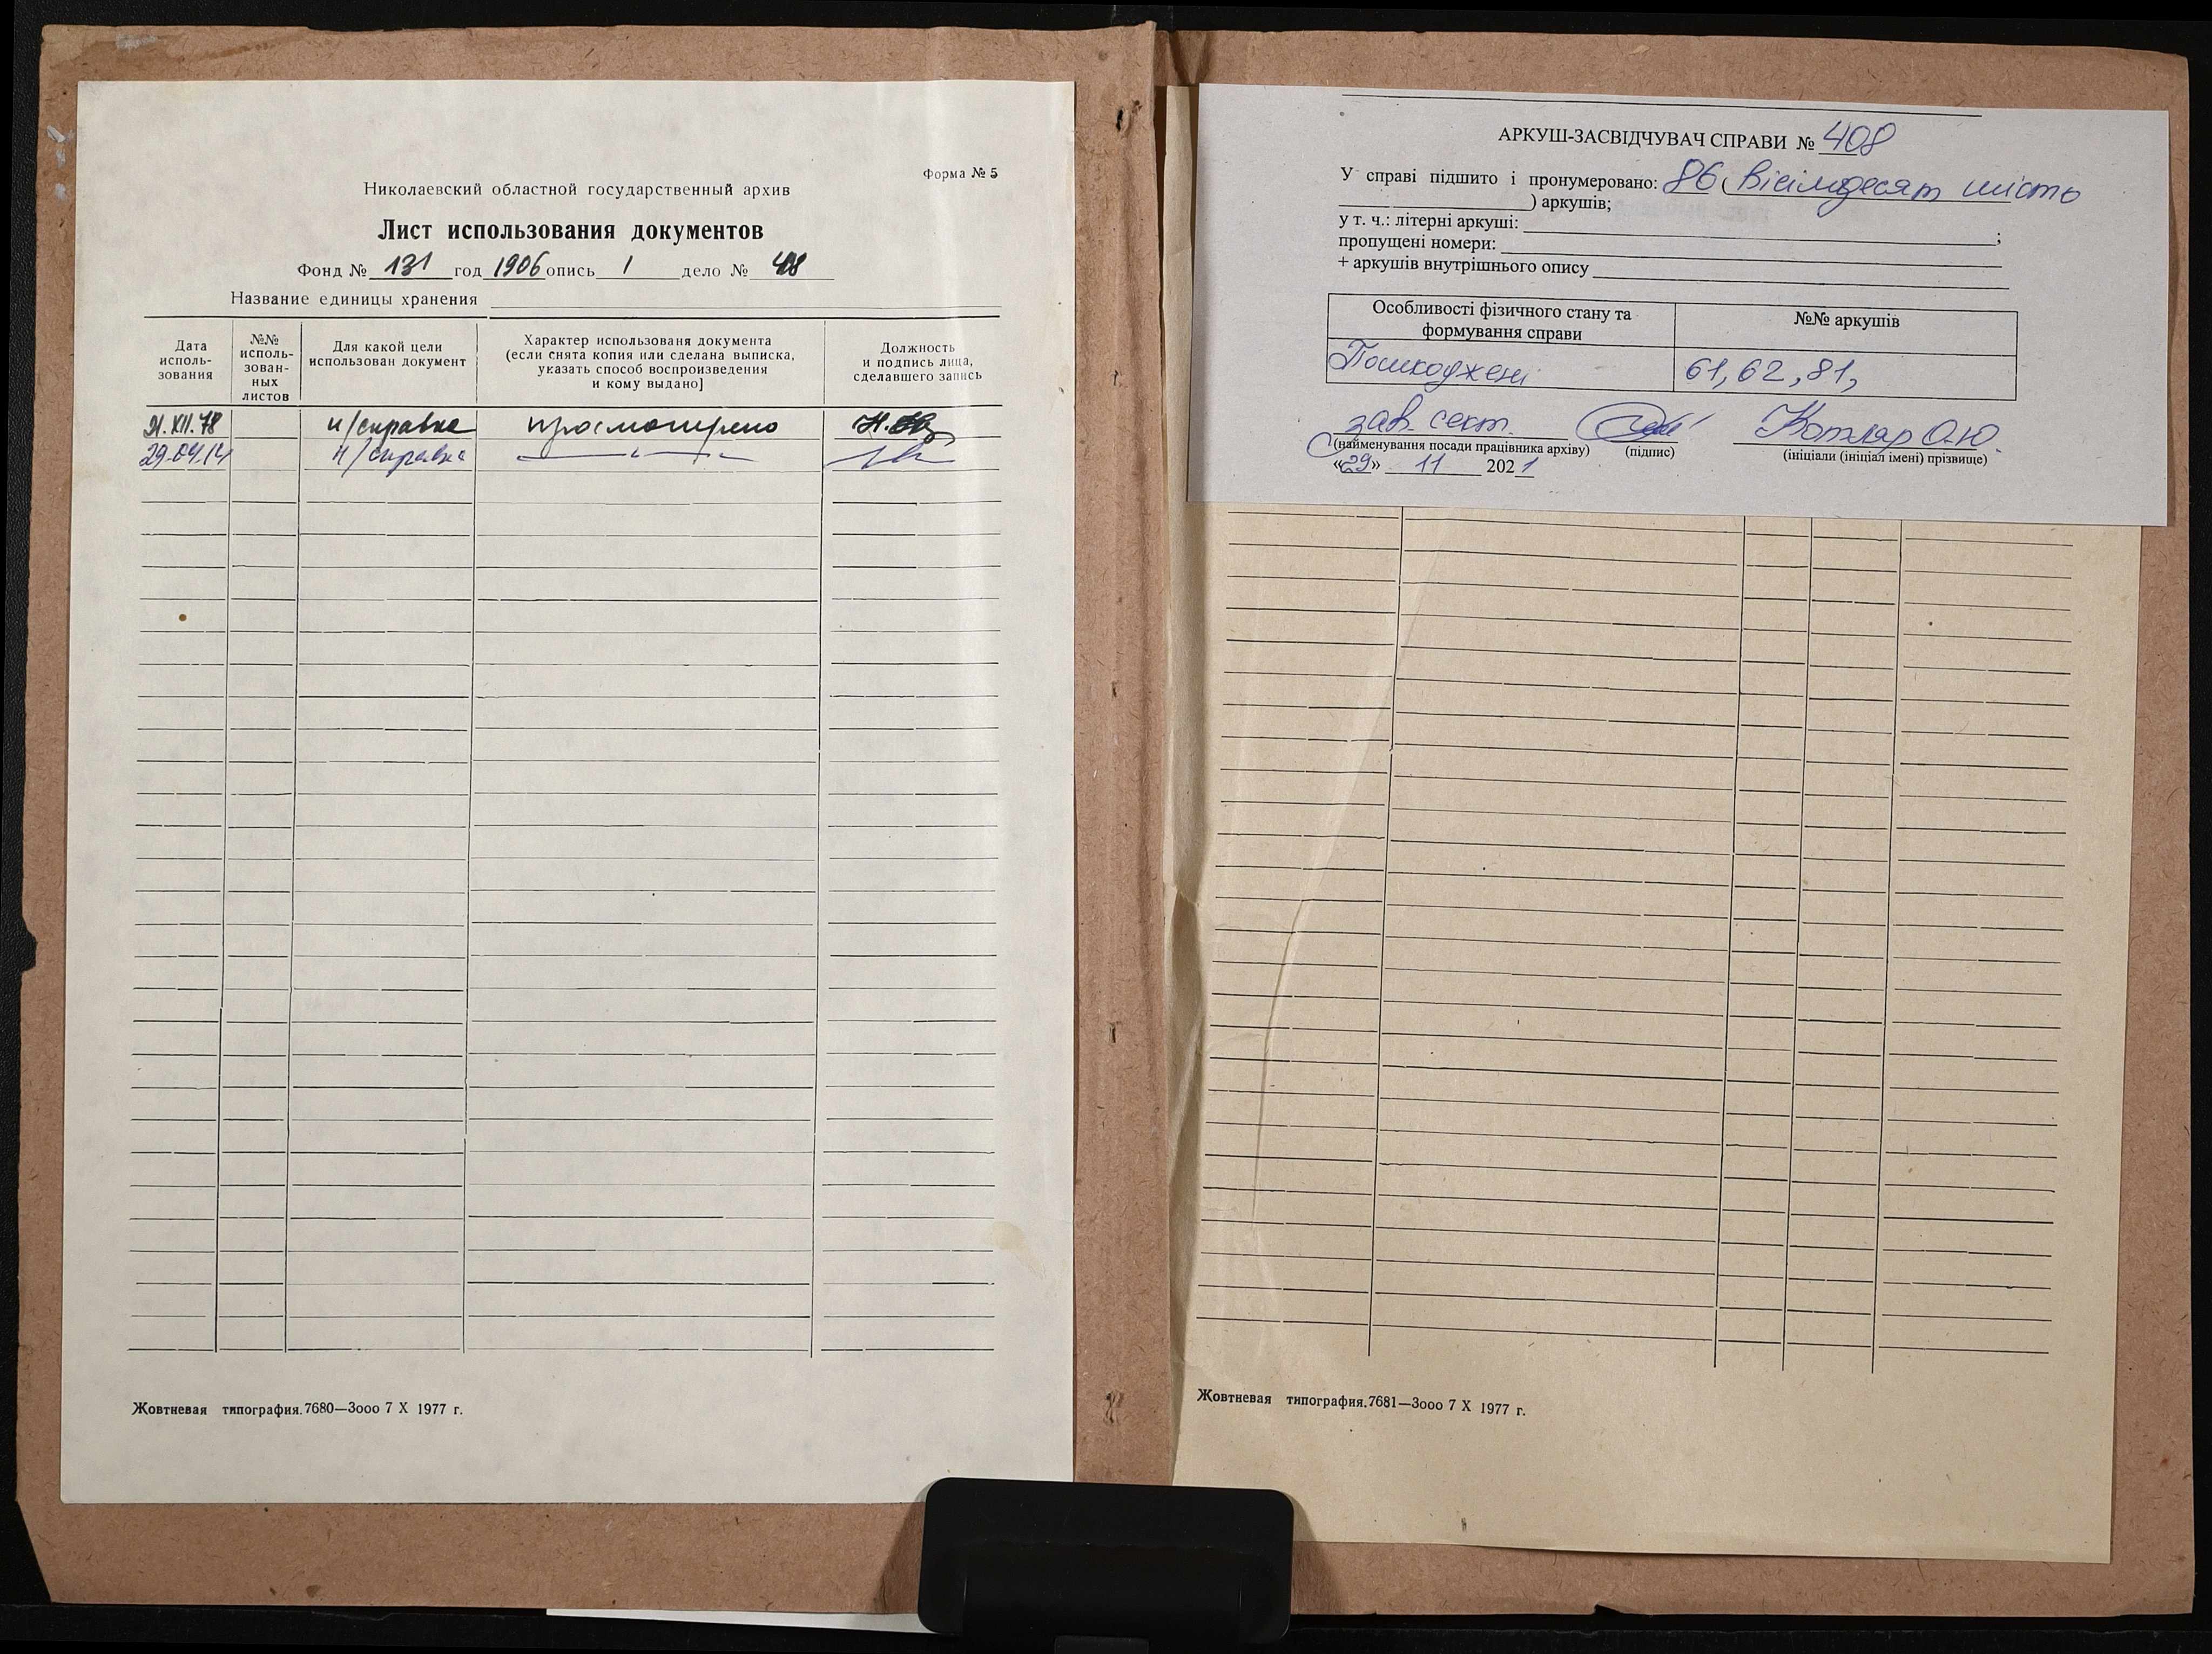 Форма № 5
Николаевский областной государственный архив
Лист использования документов
Фонд № 131 год 1906 опись 1 дело № 408
Название единицы хранения
Дата исполь-зования
№№ исполь-зован-ных листов
Для какой цели использован документ
Характер использованя документа (если снята копия или сделана выписка, указать способ воспроизведения и кому выдано]
Должность и подпись лица, сделавшего запись
21.XII.78 н/справка просмотрено
29.04.14 н/справка — " —
Жовтневая типография.7680—3ооо 7 X 1977 г.
АРКУШ-ЗАСВІДЧУВАЧ СПРАВИ № 408
У справі підшито і пронумеровано: 86 ( вісімдесят шість
) аркушів;
у т. ч.: літерні аркуші: ;
пропущені номери:
+ аркушів внутрішнього опису
Особливості фізичного стану та формування справи
№№ аркушів
Пошкоджені 61, 62, 81,
зав. сект. Котляр О.Ю.
(найменування посади працівника архіву) (підпис) (ініціали (ініціал імені) прізвище)
«29» 11 2021
Жовтневая типография.7681—3ооо 7 X 1977 г.